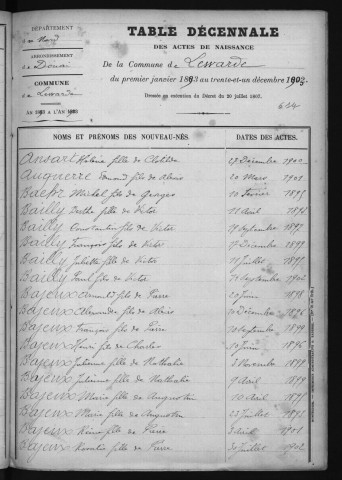 DÉPARTEMENT
du Nord
ARRONDISSEMENT
de Douai
COMMUNE
de Lewarde
AN 1893 A L'AN 1903
TABLE DÉCENNALE
DES ACTES DE NAISSANCE
De la Commune de Lewarde
du premier janvier 1893 au trente-et-un décembre 1903.
Dressée en exécution du Décret du 20 juillet 1807.
614
NOMS ET PRÉNOMS DES NOUVEAU-NÉS. DATES DES ACTES.
Ansart fille de Clotilde 27 Décembre 1900
Edmond fils de 20 Mars 1901
Michel fils de Georges 10 février 1895
Bailly Berthe fille de Victor 11 Avril 1896
Bailly Constantin fils de Victor 19 Septembre 1897
Bailly François fils de Victor 17 Décembre 1899
Bailly Juliette fille de Victor 11 Juillet 1897
Bailly Paul fils de Victor Septembre 1902
Bajeux Arnould fils de Pierre 20 Juin 1898
Bajeux fils de Alexis Décembre 1896
Bajeux François fils de Pierre Septembre 1899
Bajeux Henri fils de Charles Juin 1896
Bajeux Julienne fille de Nathalie 3 Novembre 1894
Bajeux Julienne fille de Nathalie 9 Avril 1899
Bajeux Marie fille de Augustin 10 Avril 1895
Bajeux Maria fille de Augustin 23 Juillet
Bajeux fille de Pierre 3 1901
Bajeux fille de Pierre 30 Juillet 1902